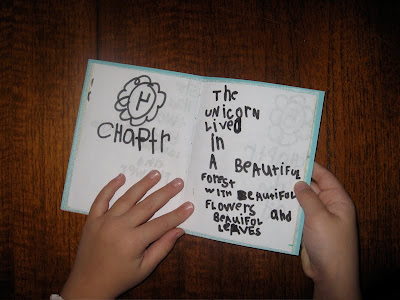 CHAPTR
The
UNICORN
Lived
IN
A BEAUTIFUL
FOREST
WITH BEAUTIFUL
FLOWERS and
BEAUIFUL
LEAVES